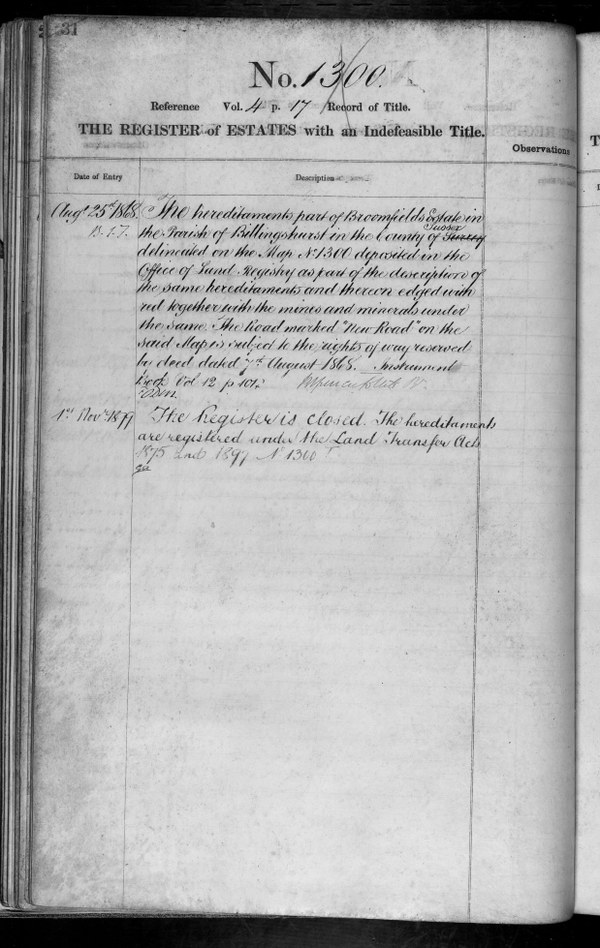 31
No. 1300.
Reference Vol. 4 p. 17 Record of Title.
THE REGISTER of ESTATES with an Indefeasible Title.
Observations
Date of Entry
Description
Augt 25th 1868. The hereditaments part of Broomfields Estate in
Sussex
the Parish of Billingshurst in the County of Surrey
delineated on the Map No 1300 deposited in the
Office of Land Registry as part of the description of
the same hereditaments and thereon edged with
red together with the mines and minerals under
the same. The Road marked "New Road" on the
said Map is subject to the rights of way reserved
by deed dated 7th August 1868. Instrument
Book Vol 12 p 101.
1st Novr 1899 The Register is closed. The hereditaments
are registered under the Land Transfer Acts
1875 and 1897 No 1300